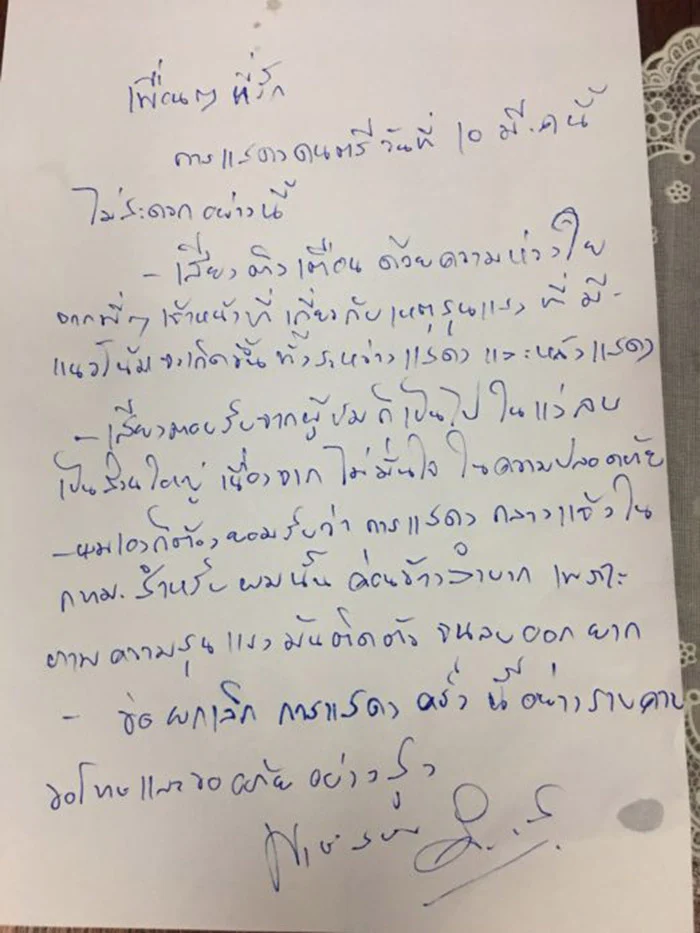 เพื่อนๆ ที่รัก
การแสดงดนตรี วันที่ 10 มี.ค นี้
ไม่สะดวก อย่างนี้
- เสียงติงเตือน ด้วยความห่วงใย
จากพี่ๆ เจ้าหน้าที่ เกี่ยวกับเหตุรุนแรง ที่ มี-
แนวโน้มจะเกิดขึ้น ทั้งระหว่างแสดง และหลังแสดง
- เสียงตอบรับจากผู้ชม ก็เป็นไป ในแง่ลบ
เป็นส่วนใหญ่ เนื่องจาก ไม่มั่นใจ ในความปลอดภัย
- ผมเองก็ต้องยอมรับว่า การแสดง กลางแจ้งใน
กทม. สำหรับ ผมนั้น ค่อนข้างลำบาก เพราะ
ภาพความรุนแรง มันติดตัว จนลบออก ยาก
- ขอ ยกเลิก การแสดง ครั้ง นี้ อย่างราบคาบ
ขอโทษและขออภัย อย่างสูง